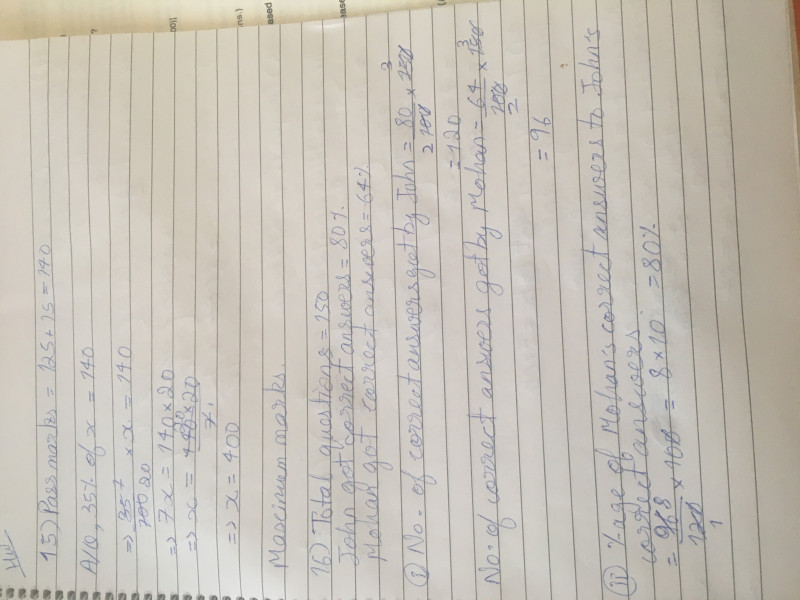 HW
15) Pass marks = 125 + 15 = 140
A/Q, 35% of x = 140
=> 35 7 / 100 20 × x = 140
=> 7x = 140 × 20
=> x = 140 20 × 20 / 7
=> x = 400
Maximum marks.
16) Total questions = 150
John got correct answers = 80%.
Mohan got correct answers = 64%.
(i) No. of correct answers got by John = 80 / 100 2 × 150 3
= 120
No. of correct answers got by Mohan = 64 / 100 2 × 150 3
= 96
(ii) %age of Mohan's correct answers to John's
correct answers.
= 96 8 / 120 1 × 100 = 8 × 10 = 80%